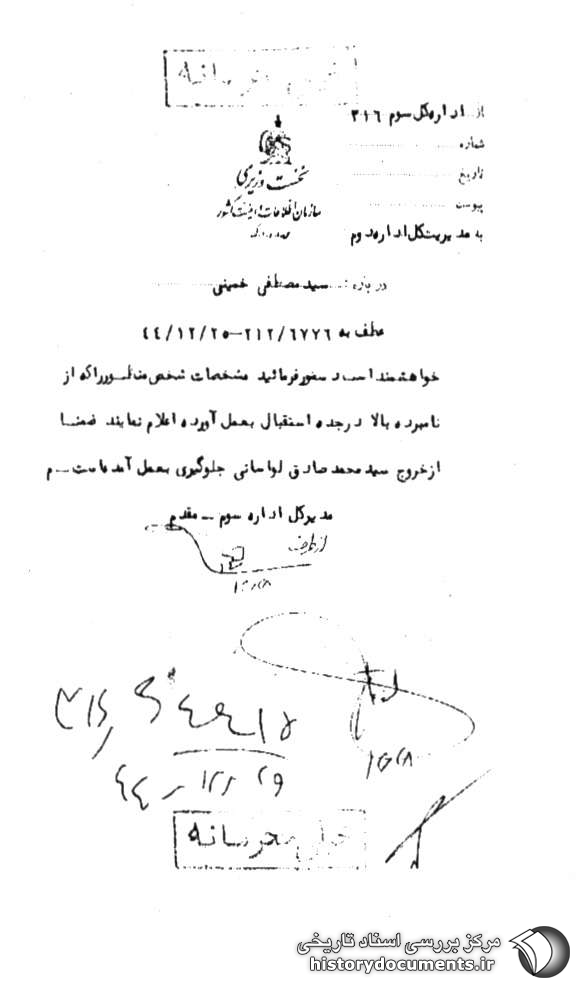 خیلی محرمانه
از اداره‌کل سوم ۳۱۶
شماره
تاریخ
پیوست
نخست وزیری
سازمان اطلاعات و امنیت کشور
به مدیریت‌کل اداره دوم
درباره : سید مصطفی خمینی
عطف به ۲۱۲/۶۷۷۶-۴۴/۱۲/۲۵
خواهشمند است دستور فرمائید مشخصات شخص منظور را که از
نامبرده بالا در جده استقبال بعمل آورده اعلام نمایند ضمنا
از خروج سید محمد صادق لواسانی جلوگیری بعمل آمده است - م
مدیرکل اداره سوم - مقدم
از طرف
۱۲/۲۸
۱۲/۲۸
۴۴-۱۲/۲۹
خیلی محرمانه
مرکز بررسی اسناد تاریخی
historydocuments.ir